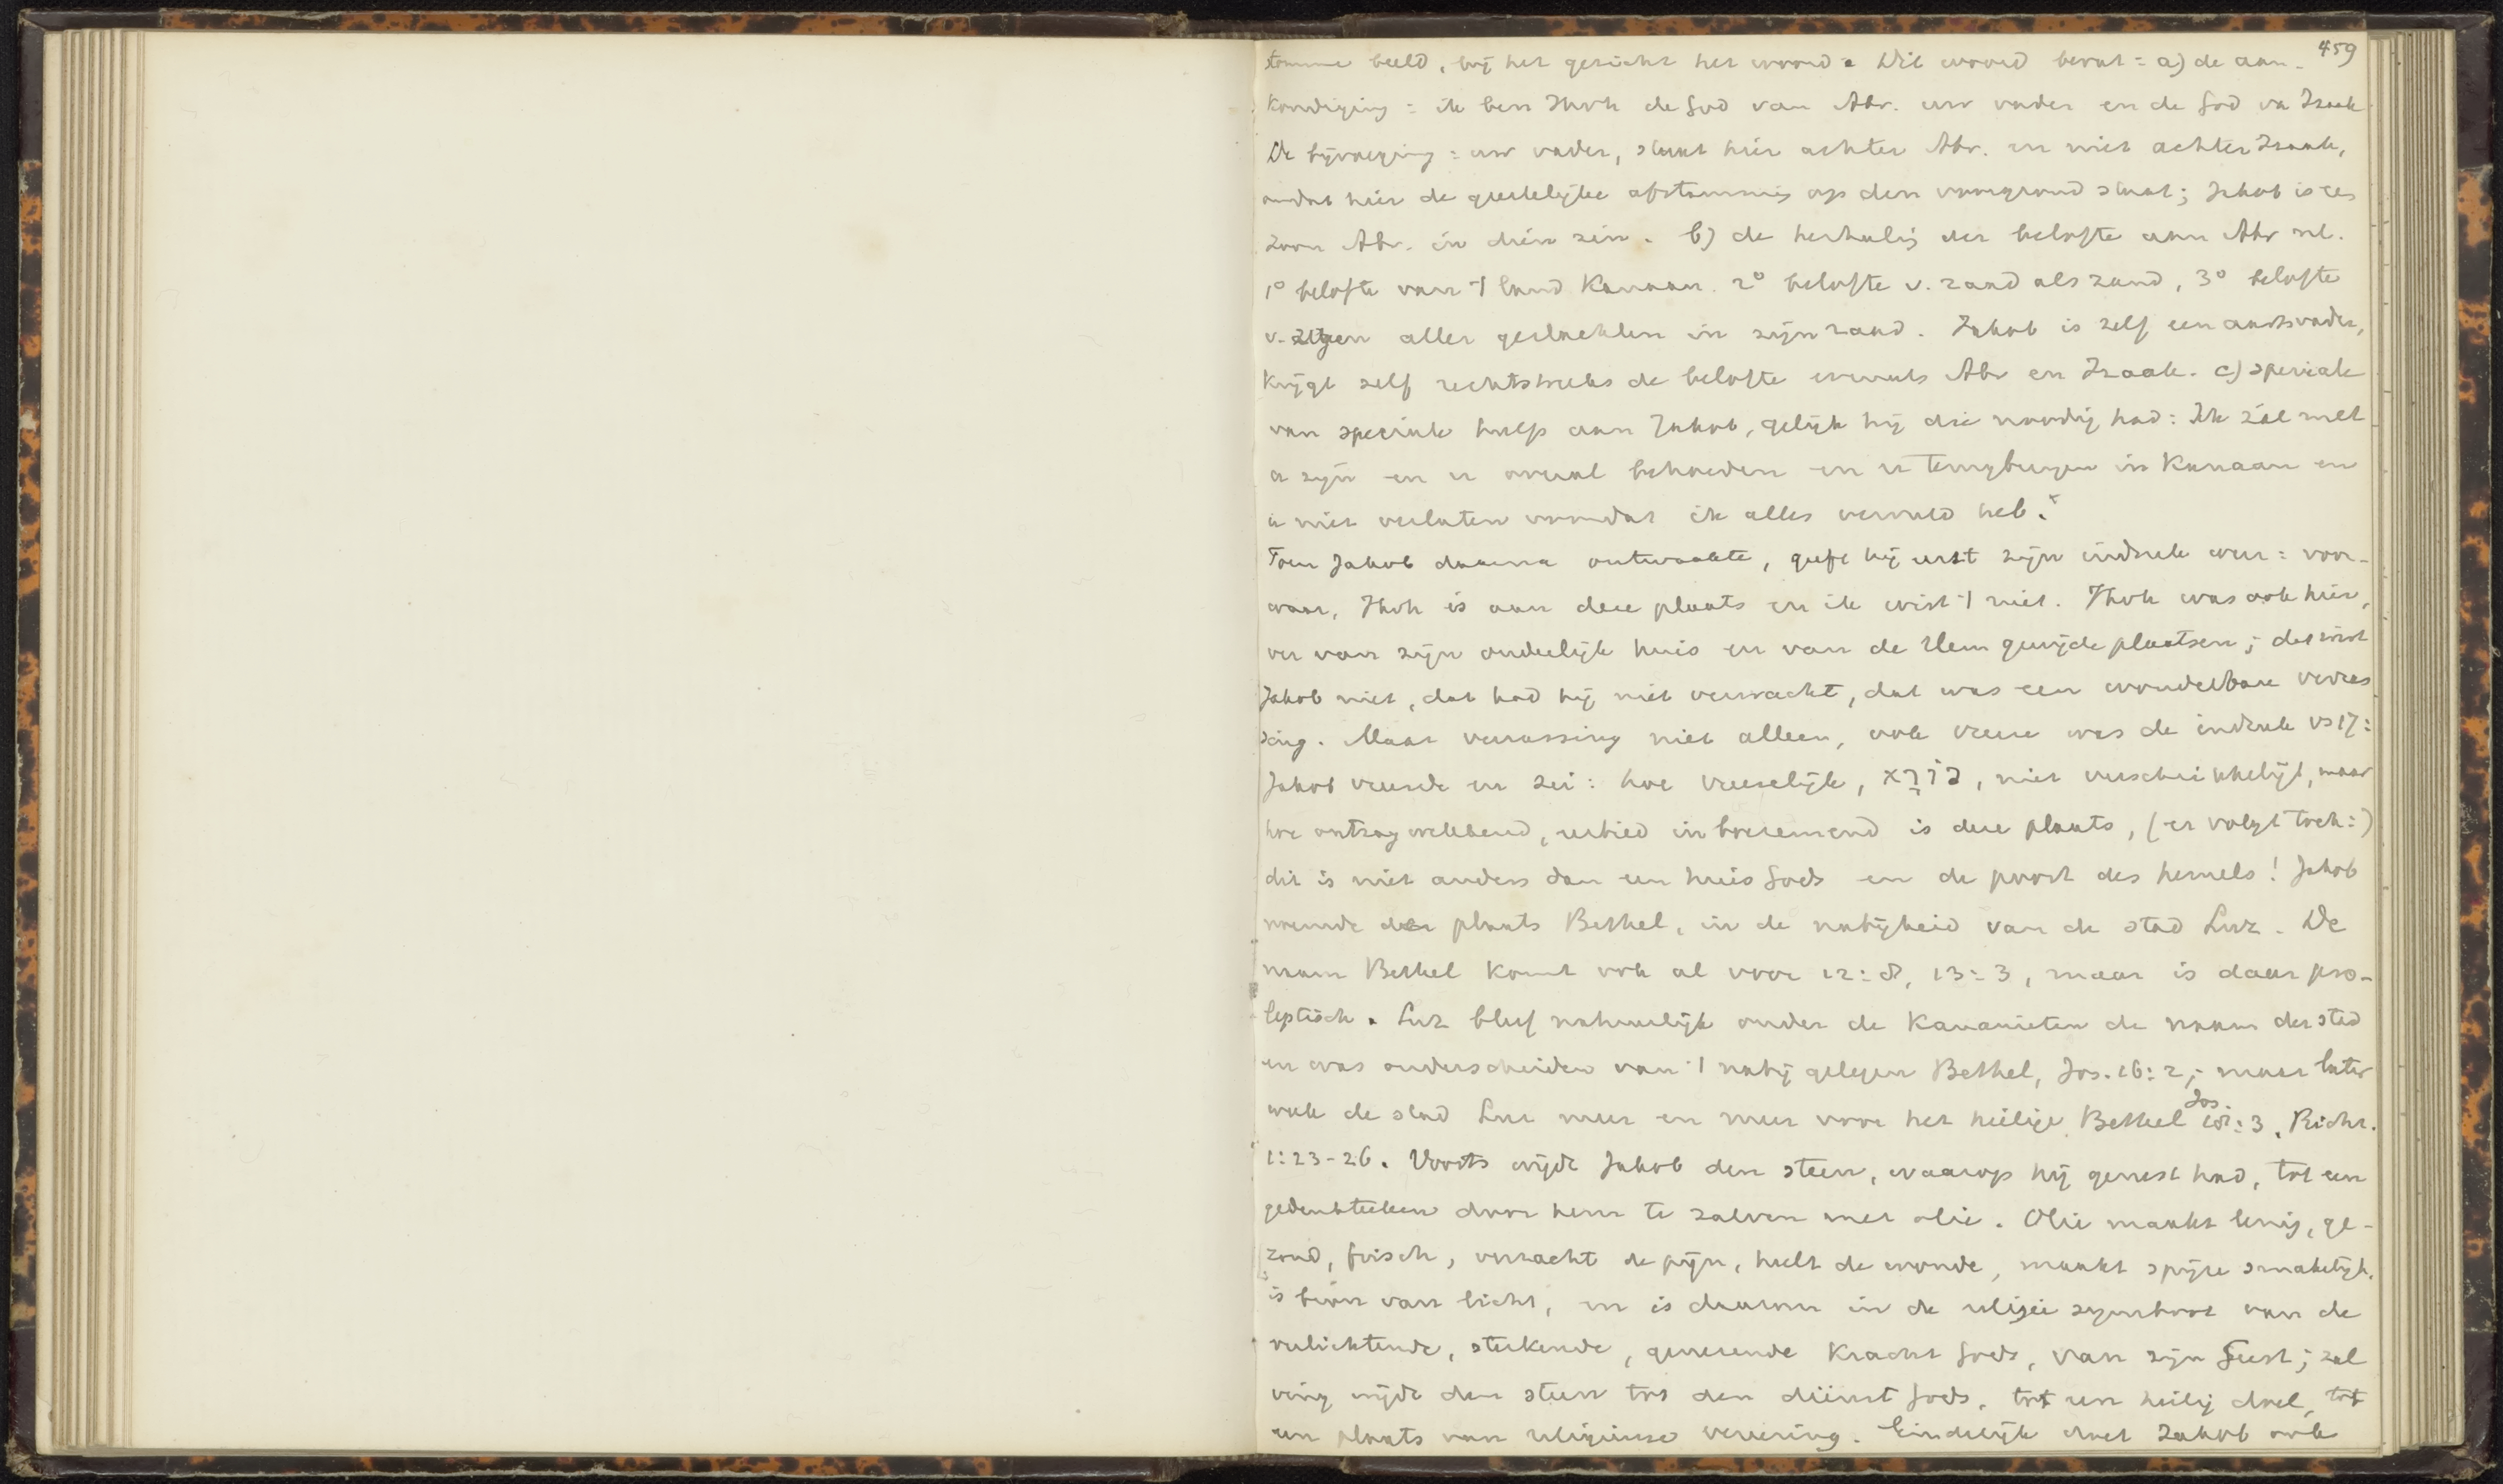 459
stomme beeld, bij het gezicht het woord. Dit woord bevat: a) de aan-
kondiging: ik ben Jhvh de God van Abr. uw vader en de God va Izaak
De bijvoeging: uw vader, staat hier achter Abr. en niet achter Izaak,
omdat hier de geestelijke afstamming op den voorgrond staat; Jakob is een
zoon Abr. in dien zin. b) de herhaling der belofte aan Abr nl.
1° belofte van 't land Kanaan. 2° belofte v. zaad als zand, 3° belofte
v. zegen aller geslachten in zijn zaad. Jakob is zelf een aartsvader,
krijgt zelf rechtstreeks de belofte evenals Abr en Izaak. c) speciale
van speciale hulp aan Jakob, gelijk hij die noodig had: Ik zal met
u zijn en u overal behoeden en u terugbrengen in Kanaan en
u niet verlaten voordat ik alles vervuld heb.
Toen Jakob daarna ontwaakte, geeft hij eerst zijn indruk weer: voor-
waar, Jhvh is aan deze plaats en ik wist 't niet. Jhvh was ook hier,
ver van zijn ouderlijk huis en van de Hem gewijde plaatsen; dat wist
Jakob niet, dat had hij niet verwacht, dat was een wonderbare verras
sing. Maar verrassing niet alleen, ook vreeze was de indruk vs 17:
Jakob vreesde en zei: hoe vreeselijk, נורא, niet verschrikkelijk, maar
hoe ontzagwekkend, eerbied inboezemend is deze plaats, (er volgt toch:)
dit is niet anders dan een huis Gods en de poort des hemels! Jakob
noemde der plaats Bethel, in de nabijheid van de stad Luz. De
naam Bethel komt ook al voor 12:8, 13:3, maar is daar pro-
leptisch. Luz bleef natuurlijk onder de Kanaanieten de naam der stad
en was onderscheiden van 't nabij gelegen Bethel, Jos. 16:2; maar later
week de stad Luz meer en meer voor het heilige Bethel Jos. 18:3, Richt.
1:23-26. Voorts wijdt Jakob den steen, waarop hij gerust had, tot een
gedenkteeken door hem te zalven met olie. Olie maakt lenig, ge-
zond, frisch, verzacht de pijn, heelt de wonde, maakt spijze smakelijk,
is bron van licht, en is daarom in de religie symbool van de
verlichtende, sterkende, genezende kracht Gods, van zijn Geest; zal
ving wijdt den steen tot den dienst Gods, tot een heilig doel, tot
een plaats van religieuse vereering. Eindelijk doet Jakob ook